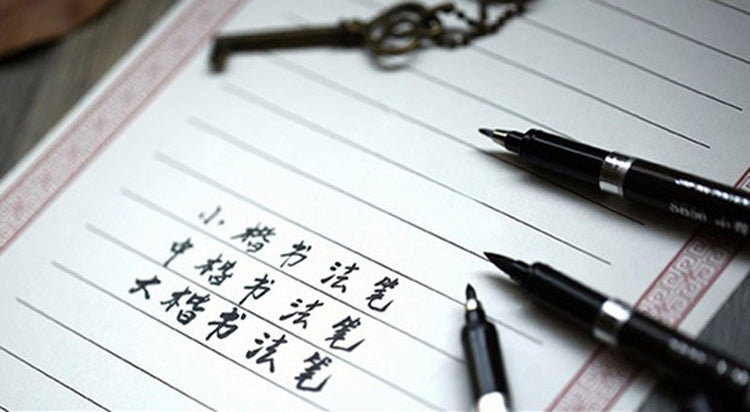 小楷书法笔
中楷书法笔
大楷书法笔